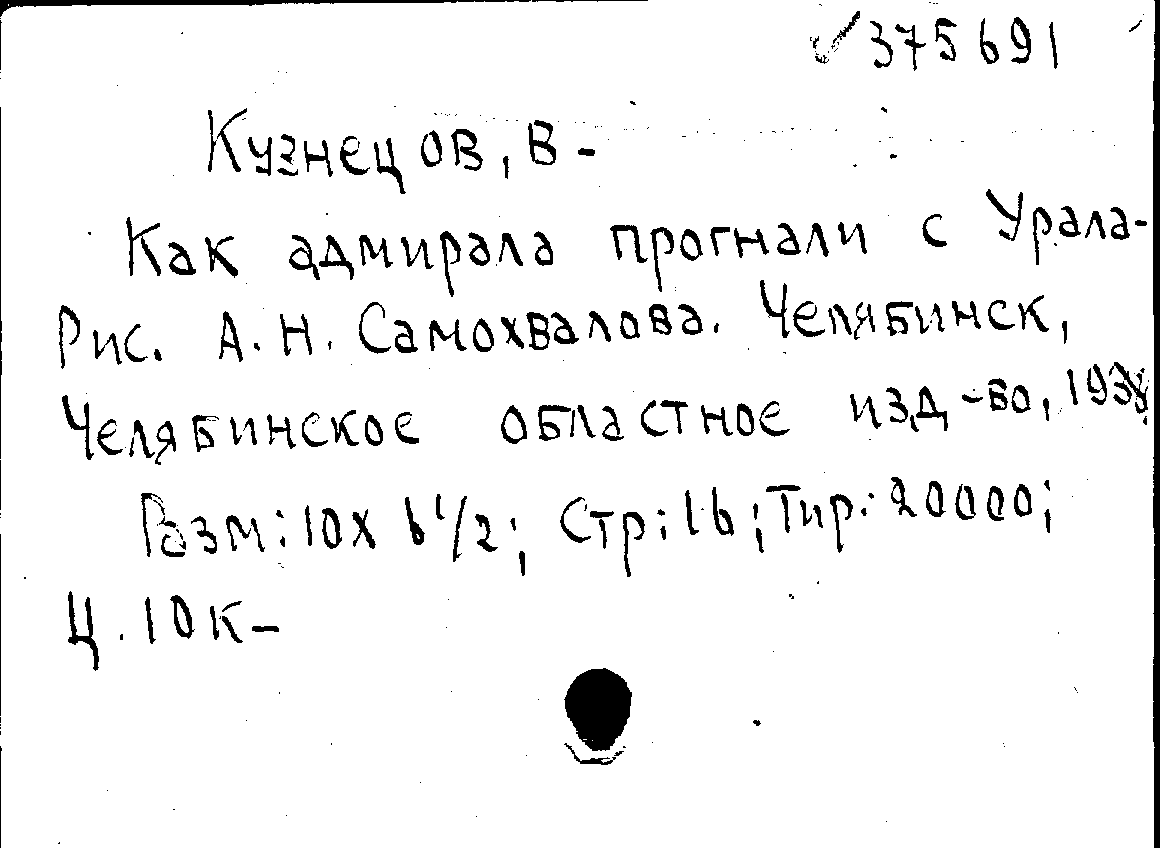 ✓375691
Кузнецов, В-
Как адмирала прогнали с Урала-
Рис. А.Н. Самохвалова. Челябинск,
Челябинское областное изд-во,
Разм: 10х 6 1/2; Стр: 16; Тир: 20000;
Ц. 10 к-